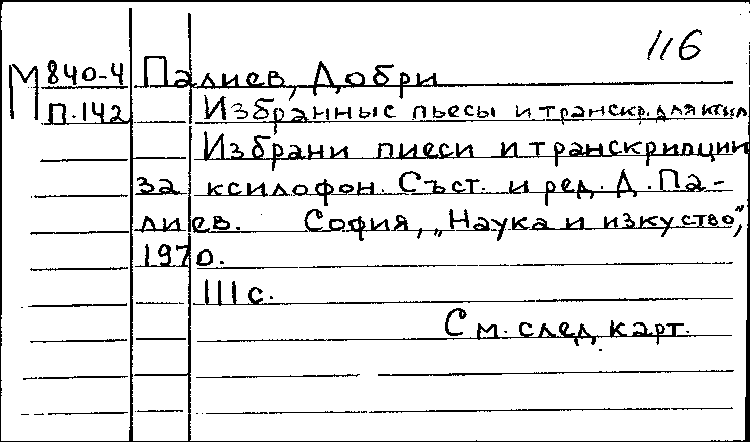 116
М 840-4 Палиев, Добри
П.142 Избранные пьесы и транскр. для ксил
Избрани пиеси и транскрипции
за ксилофон. Съст. и ред. Д. Па-
лиев. София, „Наука и изкуство",
1970.
111 с.
См. след. карт.